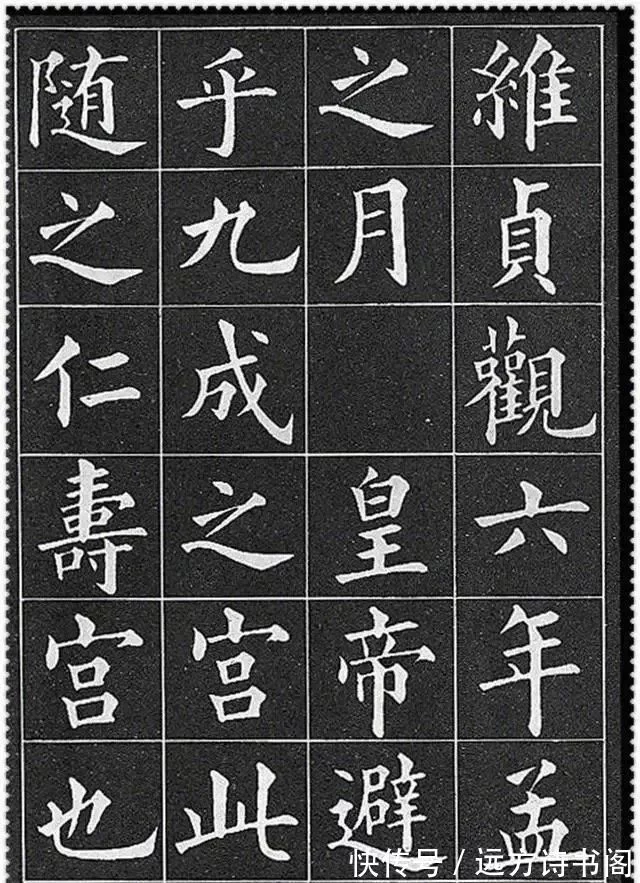 維貞觀六年孟
之月 皇帝避
乎九成之宮此
随之仁壽宮也
快传号 / 远方诗书阁